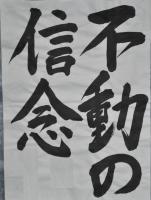 不動の
信念